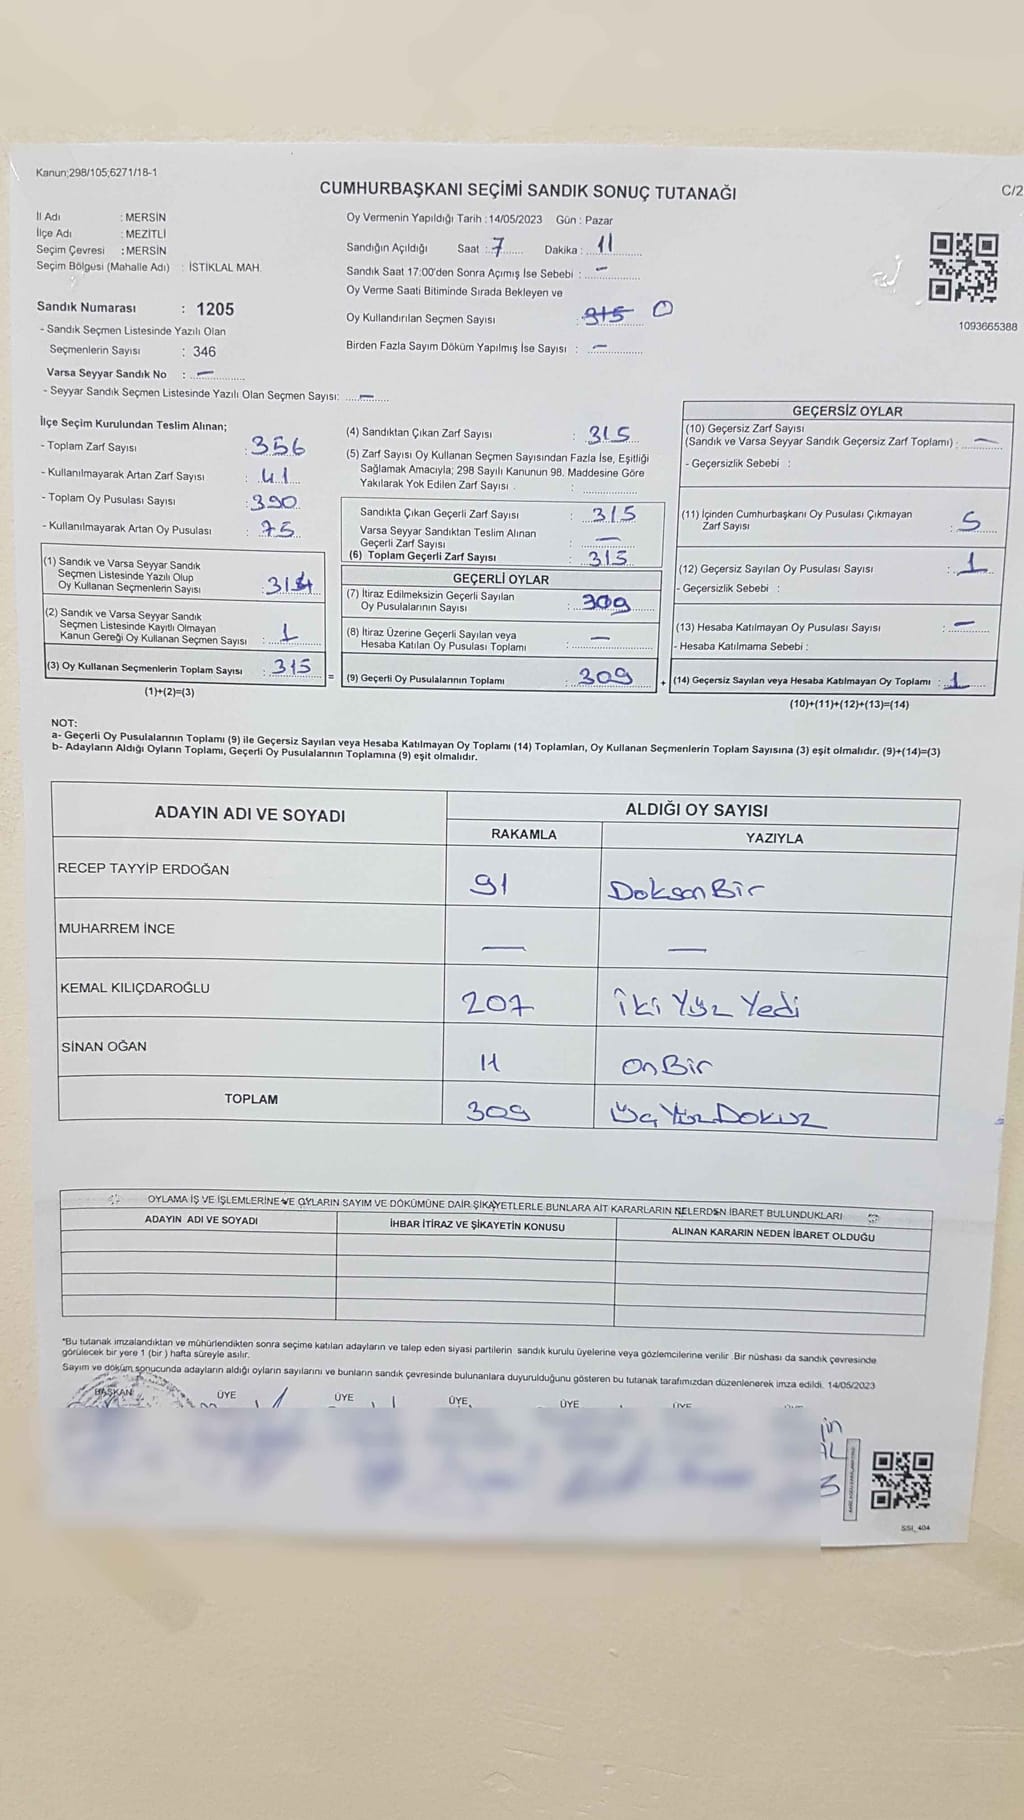 Kanun;298/105;6271/18-1
CUMHURBAŞKANI SEÇİMİ SANDIK SONUÇ TUTANAĞI
C/2
İl Adı : MERSİN
İlçe Adı : MEZİTLİ
Seçim Çevresi : MERSİN
Seçim Bölgüsü (Mahalle Adı) : İSTİKLAL MAH.
Oy Vermenin Yapıldığı Tarih : 14/05/2023 Gün : Pazar
Sandığın Açıldığı Saat : 7 Dakika : 11
Sandık Saat 17:00'den Sonra Açımış İse Sebebi : –
Oy Verme Saati Bitiminde Sırada Bekleyen ve
Oy Kullandırılan Seçmen Sayısı : 315 0
Birden Fazla Sayım Döküm Yapılmış İse Sayısı : –
1093665388
Sandık Numarası : 1205
- Sandık Seçmen Listesinde Yazılı Olan
Seçmenlerin Sayısı : 346
Varsa Seyyar Sandık No : –
- Seyyar Sandık Seçmen Listesinde Yazılı Olan Seçmen Sayısı: –
İlçe Seçim Kurulundan Teslim Alınan;
- Toplam Zarf Sayısı : 356
- Kullanılmayarak Artan Zarf Sayısı : 41
- Toplam Oy Pusulası Sayısı : 390
- Kullanılmayarak Artan Oy Pusulası : 75
(1) Sandık ve Varsa Seyyar Sandık
Seçmen Listesinde Yazılı Olup
Oy Kullanan Seçmenlerin Sayısı : 314
(2) Sandık ve Varsa Seyyar Sandık
Seçmen Listesinde Kayıtlı Olmayan
Kanun Gereği Oy Kullanan Seçmen Sayısı : 1
(3) Oy Kullanan Seçmenlerin Toplam Sayısı : 315
(1)+(2)=(3)
(4) Sandıktan Çıkan Zarf Sayısı : 315
(5) Zarf Sayısı Oy Kullanan Seçmen Sayısından Fazla İse, Eşitliği
Sağlamak Amacıyla; 298 Sayılı Kanunun 98. Maddesine Göre
Yakılarak Yok Edilen Zarf Sayısı :
Sandıkta Çıkan Geçerli Zarf Sayısı : 315
Varsa Seyyar Sandıktan Teslim Alınan
Geçerli Zarf Sayısı : –
(6) Toplam Geçerli Zarf Sayısı : 315
GEÇERLİ OYLAR
(7) İtiraz Edilmeksizin Geçerli Sayılan
Oy Pusulalarının Sayısı : 309
(8) İtiraz Üzerine Geçerli Sayılan veya
Hesaba Katılan Oy Pusulası Toplamı : –
= (9) Geçerli Oy Pusulalarının Toplamı : 309
GEÇERSİZ OYLAR
(10) Geçersiz Zarf Sayısı
(Sandık ve Varsa Seyyar Sandık Geçersiz Zarf Toplamı) : –
- Geçersizlik Sebebi :
(11) İçinden Cumhurbaşkanı Oy Pusulası Çıkmayan
Zarf Sayısı : 5
(12) Geçersiz Sayılan Oy Pusulası Sayısı : 1
- Geçersizlik Sebebi :
(13) Hesaba Katılmayan Oy Pusulası Sayısı : –
- Hesaba Katılmama Sebebi :
+ (14) Geçersiz Sayılan veya Hesaba Katılmayan Oy Toplamı : 1
(10)+(11)+(12)+(13)=(14)
NOT:
a- Geçerli Oy Pusulalarının Toplamı (9) ile Geçersiz Sayılan veya Hesaba Katılmayan Oy Toplamı (14) Toplamları, Oy Kullanan Seçmenlerin Toplam Sayısına (3) eşit olmalıdır. (9)+(14)=(3)
b- Adayların Aldığı Oyların Toplamı, Geçerli Oy Pusulalarının Toplamına (9) eşit olmalıdır.
ADAYIN ADI VE SOYADI ALDIĞI OY SAYISI
RAKAMLA YAZIYLA
RECEP TAYYİP ERDOĞAN 91 Doksan Bir
MUHARREM İNCE – –
KEMAL KILIÇDAROĞLU 207 İki Yüz Yedi
SİNAN OĞAN 11 On Bir
TOPLAM 309 Üç Yüz Dokuz
OYLAMA İŞ VE İŞLEMLERİNE VE OYLARIN SAYIM VE DÖKÜMÜNE DAİR ŞİKAYETLERLE BUNLARA AİT KARARLARIN NELERDEN İBARET BULUNDUKLARI
ADAYIN ADI VE SOYADI İHBAR İTİRAZ VE ŞİKAYETİN KONUSU ALINAN KARARIN NEDEN İBARET OLDUĞU
*Bu tutanak imzalandıktan ve mühürlendikten sonra seçime katılan adayların ve talep eden siyasi partilerin sandık kurulu üyelerine veya gözlemcilerine verilir. Bir nüshası da sandık çevresinde
görülecek bir yere 1 (bir) hafta süreyle asılır.
Sayım ve döküm sonucunda adayların aldığı oyların sayılarını ve bunların sandık çevresinde bulunanlara duyurulduğunu gösteren bu tutanak tarafımızdan düzenlenerek imza edildi. 14/05/2023
BAŞKAN ÜYE ÜYE ÜYE ÜYE ÜYE
SSI_404